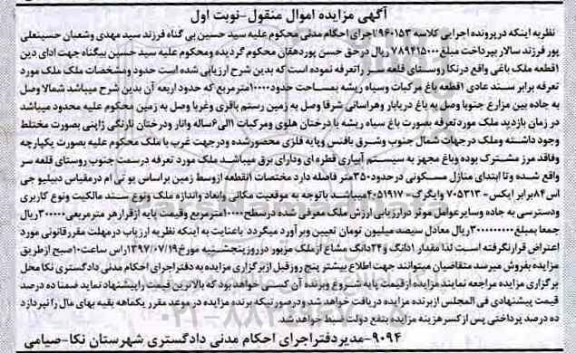 آگهی مزایده اموال منقول-نوبت اول
نظریه اینکه درپرونده اجرایی کلاسه ۹۶۰۱۵۳اجرای احکام مدنی محکوم علیه سید حسین بی گناه فرزند سید مهدی وشعبان حسینعلی
پور فرزند سالار بپرداخت مبلغ۷۸۹۴۱۵۰۰۰ ریال درحق حسن پوردهقان محکوم گردیده ومحکوم علیه سید حسین بیگناه جهت ادای دین
۱قطعه ملک باغی واقع درنکا روستای قلعه سر راتعرفه نموده است که بدین شرح ارزیابی شده است حدود ومشخصات ملک ملک مورد
تعرفه برابر سند عادی ۱قطعه باغ مرکبات وسیاه ریشه بمساحت حدود۱۰۰۰مترمربع که حدود اربعه آن بدین شرح میباشد شمالا وصل
به جاده بین مزارع جنوبا وصل به باغ دریابار وهراسانی شرقا وصل به زمین رستم باقری وغربا وصل به زمین محکوم علیه محدود میباشد
در زمان بازدید ملک موردتعرفه بصورت باغ سیاه ریشه با درختان هلوی ومرکبات ۱الی۶ساله وانار ودرختان نارنگی ژاپنی بصورت مختلط
وجود داشته وملک درجهات شمال جنوب وشرق بافنس وپایه فلزی محصورشده ودرجهت غرب با ملک محکوم علیه بصورت یکپارچه
وفاقد مرز مشترک بوده وباغ مجهز به سیستم آبیاری قطره ای ودارای برق میباشد ملک مورد تعرفه درسمت جنوب روستای قلعه سر
واقع شده وتا ابتدای منازل مسکونی درحدود۳۵۰متر فاصله دارد مختصات ۱نقطه ازوسط زمین براساس یو تی ام درمقیاس دبلیو جی
اس۸۴برابر ایکس- ۷۰۵۳۱۳ وایگرگ- ۴۰۵۱۹۱۷میباشد باتوجه به موقعیت مکانی وابعاد واندازه ملک ونوع سند مالکیت ونوع کاربری
ودسترسی به جاده وسایرعوامل موثر درارزیابی ارزش ملک معرفی شده درسطح۱۰۰۰مترمربع وقیمت پایه ازقرارهر مترمربعی ریال
جمعا بمبلغ۳۰۰۰۰۰۰۰۰۰ریال معادل سیصد میلیون تومان تعیین وبرآورد میگردد باعنایت به اینکه نظریه ارزیاب درمهلت مقررقانونی مورد
اعتراض قرارنگرفته است لذا مقدار ۱دانگ و۲۴دانگ مشاع ازملک مزبور درروزپنجشنبه مورخ۱۳۹۷/۰۷/۱۹راس ساعت۱۰صبح ازطریق
مزایده بفروش میرسد متقاضیان میتوانند جهت اطلاع بیشتر پنج روزقبل ازبرگزاری مزایده به دفتراجرای احکام مدنی دادگستری نکا محل
برگزاری مزایده مراجعه نمایند مزایده ازقیمت پایه شروع وبرنده آن کسی خواهدبود که بالاترین قیمت راپیشنهاد نماید ضمنا ده درصد
قیمت پیشنهادی فی المجلس ازبرنده مزایده دریافت خواهد شد ودرصورتیکه برنده مزایده در موعد مقرر یکماهه بقیه بهای مال رانپردازد
ده درصد پرداختی پس ازکسر هزینه مزایده بنفع دولت ضبط خواهد شد
۹۰۹۴-مدیردفتراجرای احکام مدنی دادگستری شهرستان نکا-صیامی